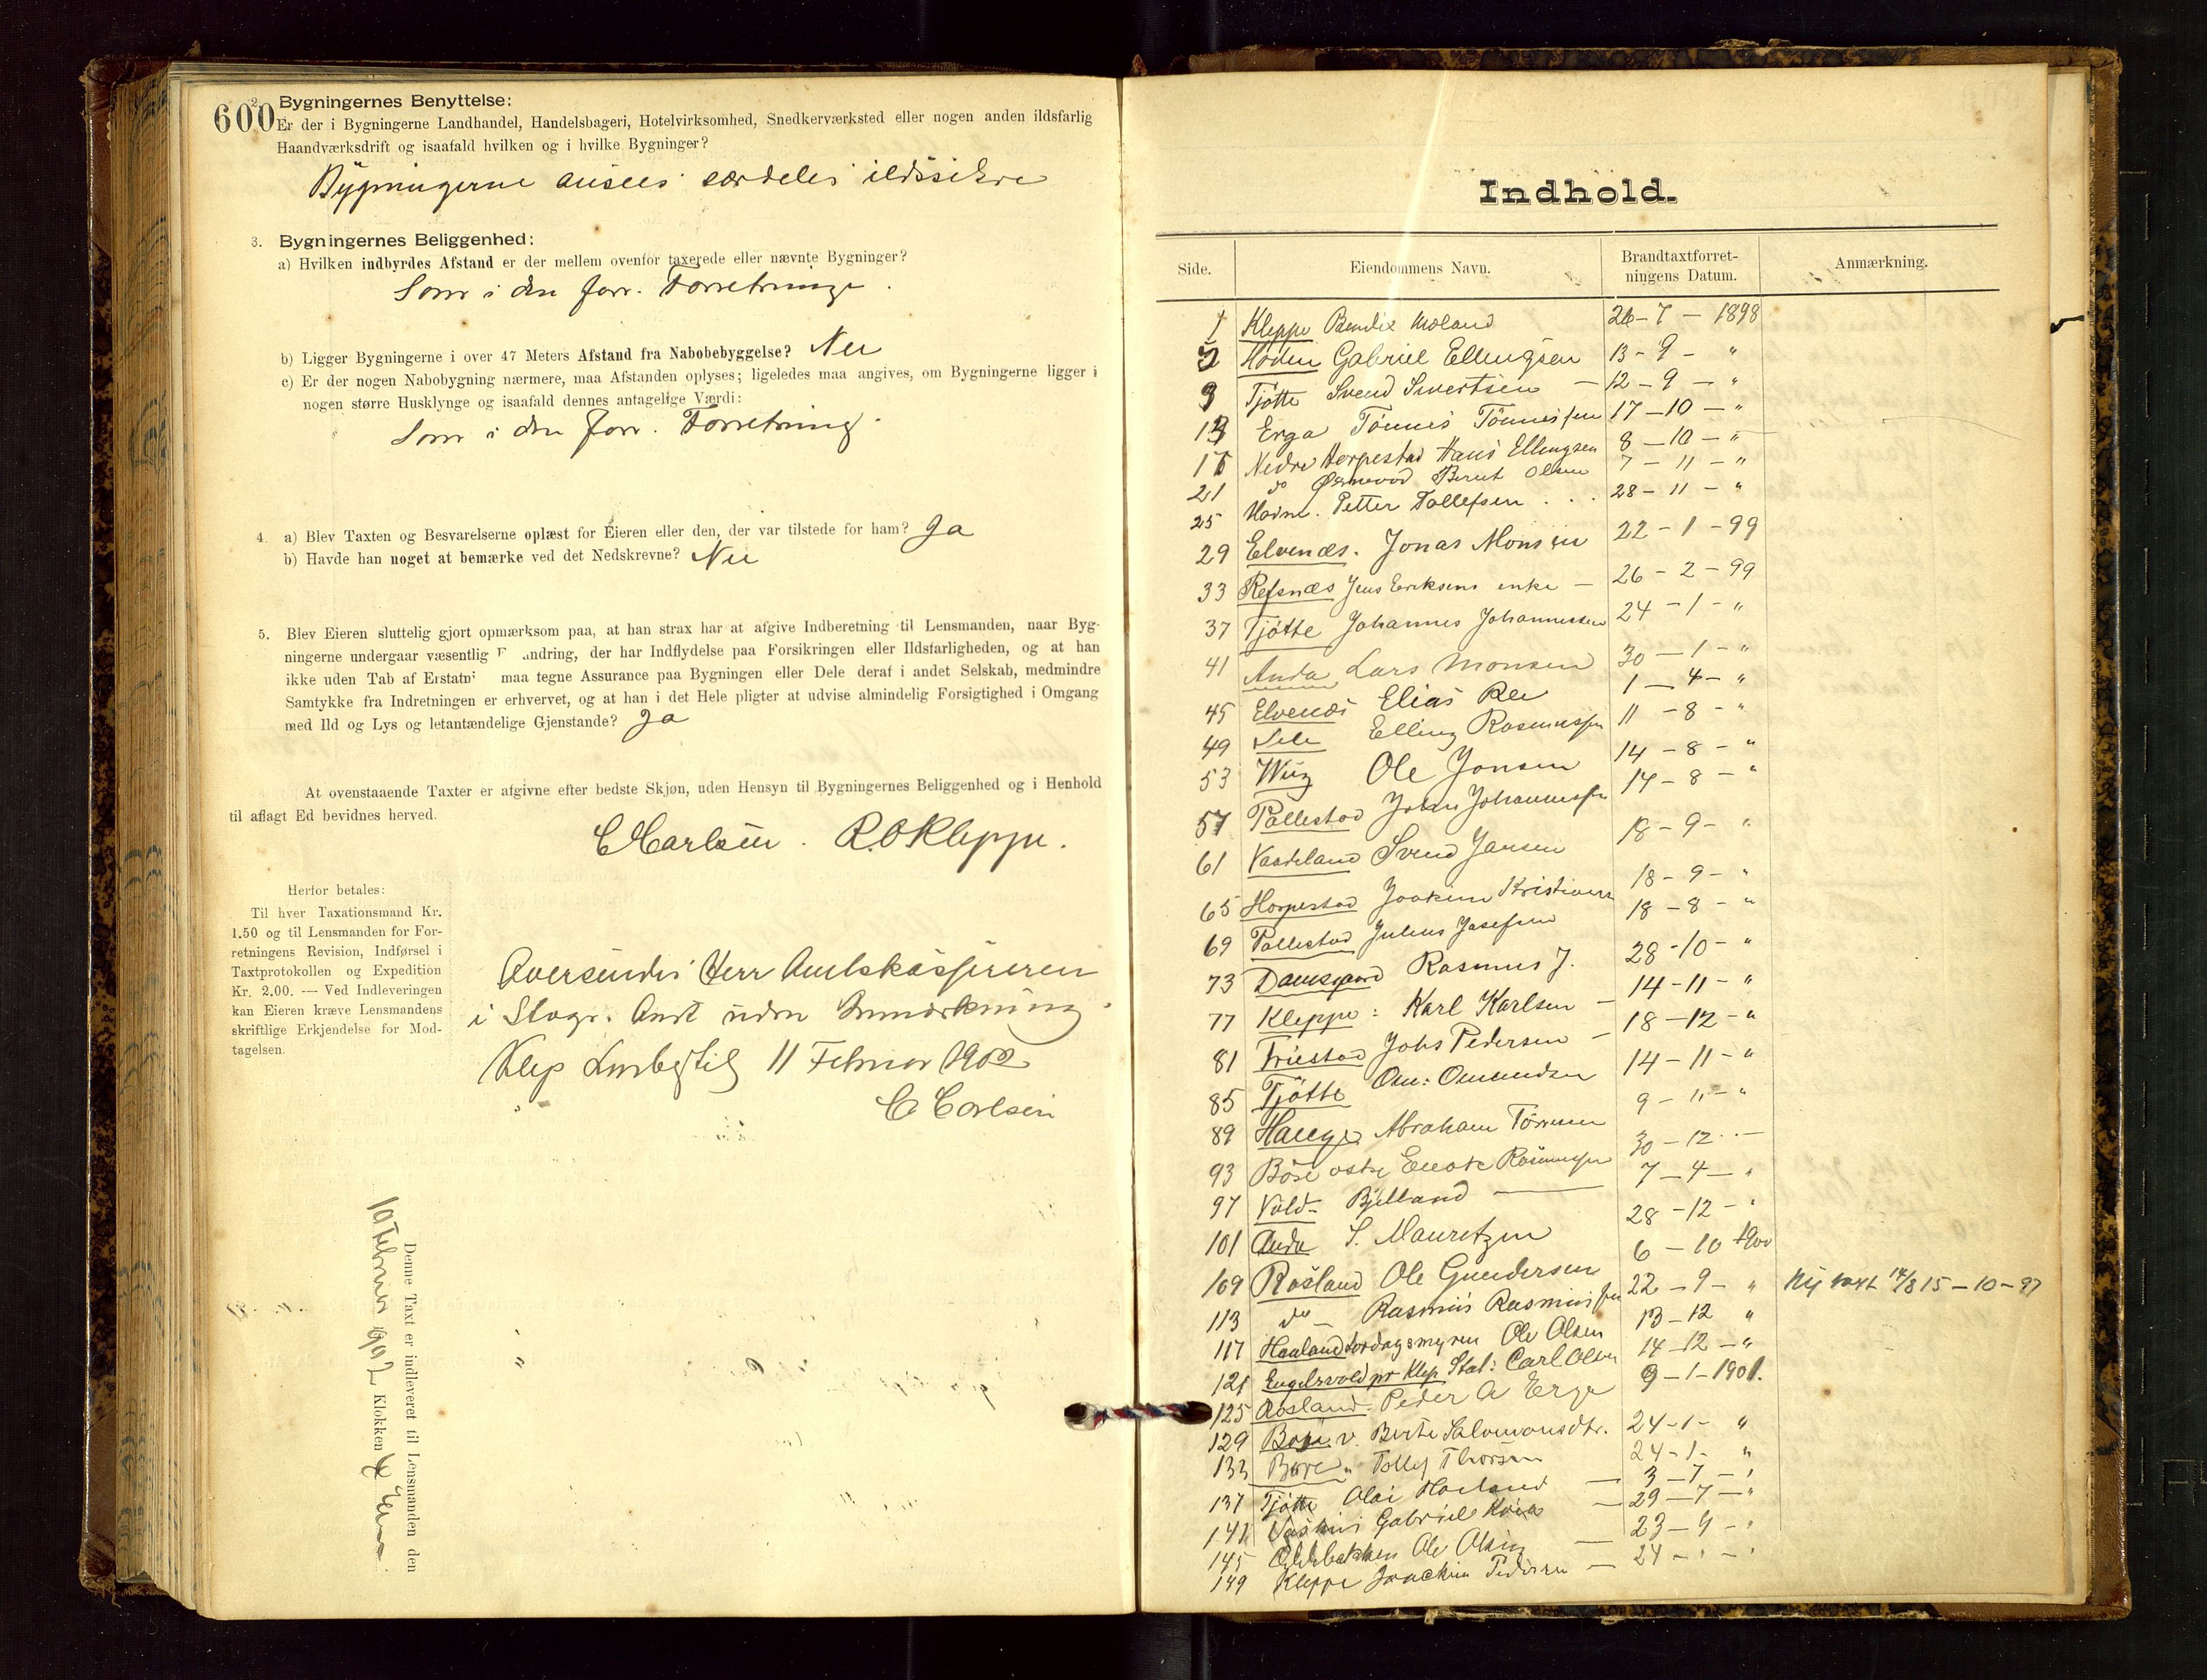 600
2. Bygningernes Benyttelse:
Er der i Bygningerne Landhandel, Handelsbageri, Hotelvirksomhed, Snedkerværksted eller nogen anden ildsfarlig
Haandværksdrift og isaafald hvilken og i hvilke Bygninger?
Bygningerne ansees særdeles ildssikre
3. Bygningernes Beliggenhed:
a) Hvilken indbyrdes Afstand er der mellem ovenfor taxerede eller nævnte Bygninger?
Som i den forr. Forretninge.
b) Ligger Bygningerne i over 47 Meters Afstand fra Nabobebyggelse? Nei
c) Er der nogen Nabobygning nærmere, maa Afstanden oplyses; ligeledes maa angives, om Bygningerne ligger i
nogen større Husklynge og isaafald dennes antagelige Værdi:
Som i den forr. Forretning.
4. a) Blev Taxten og Besvarelserne oplæst for Eieren eller den, der var tilstede for ham? Ja
b) Havde han noget at bemærke ved det Nedskrevne? Nei
5. Blev Eieren sluttelig gjort opmærksom paa, at han strax har at afgive Indberetning til Lensmanden, naar Byg-
ningerne undergaar væsentlig F andring, der har Indflydelse paa Forsikringen eller Ildsfarligheden, og at han
ikke uden Tab af Erstatn maa tegne Assurance paa Bygningen eller Dele deraf i andet Selskab, medmindre
Samtykke fra Indretningen er erhvervet, og at han i det Hele pligter at udvise almindelig Forsigtighed i Omgang
med Ild og Lys og letantændelige Gjenstande? Ja
At ovenstaaende Taxter er afgivne efter bedste Skjøn, uden Hensyn til Bygningernes Beliggenhed og i Henhold
til aflagt Ed bevidnes herved.
C Carlsen. R.O Kleppe.
Herfor betales:
Til hver Taxationsmand Kr.
1.50 og til Lensmanden for For-
retningens Revision, Indførsel i
Taxtprotokollen og Expedition
Kr. 2.00. — Ved Indleveringen
kan Eieren kræve Lensmandens
skriftlige Erkjendelse for Mod-
tagelsen.
Oversendes Herr Amtskassereren
i Stavgr. Amt uden Anmærkning.
Klep 11 Februar 1902
C Carlsen
Denne Taxt er indleveret til Lensmanden den
10 Februar 1902 Klokken
Indhold.
Side. Eiendommens Navn. Brandtaxtforret-
ningens Datum. Anmærkning.
1 Kleppe Bendix Moland 26-7-1898
5 Hoden Gabriel Ellingsen 13-9-"
9 Tjøtte Svend Sivertsen — 12-9-"
13 Erga Tønnes Tønnessen 17-10-"
17 Nedre Horpestad Hans Ellingsen 8-10-"
21 do Bernt Olsen 7-11-"
25 Petter Tollefsen . . . 28-11-"
29 Elvenæs. Jonas Monsen 22-1-99
33 Refsnæs Jens Eriksens enke — 26-2-99
37 Tjøtte Johannes Johannessen 24-1-"
41 Anda Lars Monsen 30-1-"
45 Elvenæs Elias Ree 1-4-"
49 Sele Elling Rasmussen 11-8-"
53 Wiig Ole Jonsen 14-8-"
57 Pollestad Johannessen 14-8-"
61 Vasteland Svend Jansen 18-9-"
65 Horpestad Joakim Kristians 18-9-"
69 Pollestad Julius Josefsen 18-8-"
73 Damsgaard Rasmus J. 28-10-"
77 Kleppe: Karl Karlsen — 14-11-"
81 Friestad Johs Pedersen — 18-12-"
85 Tjøtte Om: Omundsen 14-11-"
89 Hauge Abraham Tørresen 9-11-"
93 Böse østre Enok Rasmussen 30-12
97 Vold- Bjelland — 7-4-"
101 Anda S. Mauretzen 28-12-"
109 Røsland Ole Gundersen 6-10 1900
113 do — Rasmus Rasmussen 22-9-" Ny taxt 14/8 15-10-97
117 Haaland tordagsmyren Ole Olsen 13-12 "
121 Engelsvold pr Klep Stat: Carl Olsen 14-12-"
125 Røsland. Peder A Erga 9-1-1901.
129 Bore v. Berte Salomonsdtr. 24-1-"
133 Bore " Tollef Thorsen 24-1-"
137 Tjøtte Olai Haaland — 3-7-"
141 Gabriel — 29-7-"
145 Ole Olsen — 23-9-"
149 Kleppe Joachim Pedersen — 24-"-"